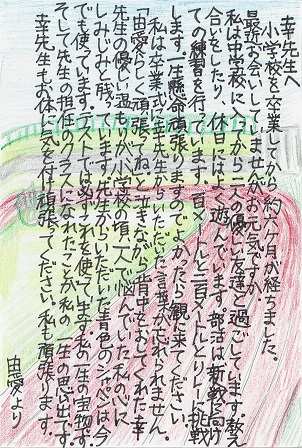 幸先生へ
小学校を卒業してから約八ケ月が経ちました。
最近お会いしていませんがお元気ですか。
私は中学校に入ってから二人の優しい友達と過ごしています。教え
合いをしたり、休日にはよく遊んでいます。部活は新戦に向け
ての練習を行っています。百メートルと二百メートルとリレーに挑戦
します。一生懸命頑張りますのでよかったら観に来てください。
私は卒業式の日、幸先生からいただいた言葉が忘れられません。
「由愛らしく頑張ってね」と泣きながら、背中をおしてくれた幸
先生の優しい温もりが小学校の頃一人で悩んでいた私の心に
しみじみと残っています。先生からいただいた青色のシャーペンは今
でも使っています。テストでは必ずこれを使っています。私の一生の宝物です。
そして先生の担任のクラスになれたことが私の一生の思い出です。
幸先生もお体に気を付け頑張ってください。私も頑張ります。
由愛より